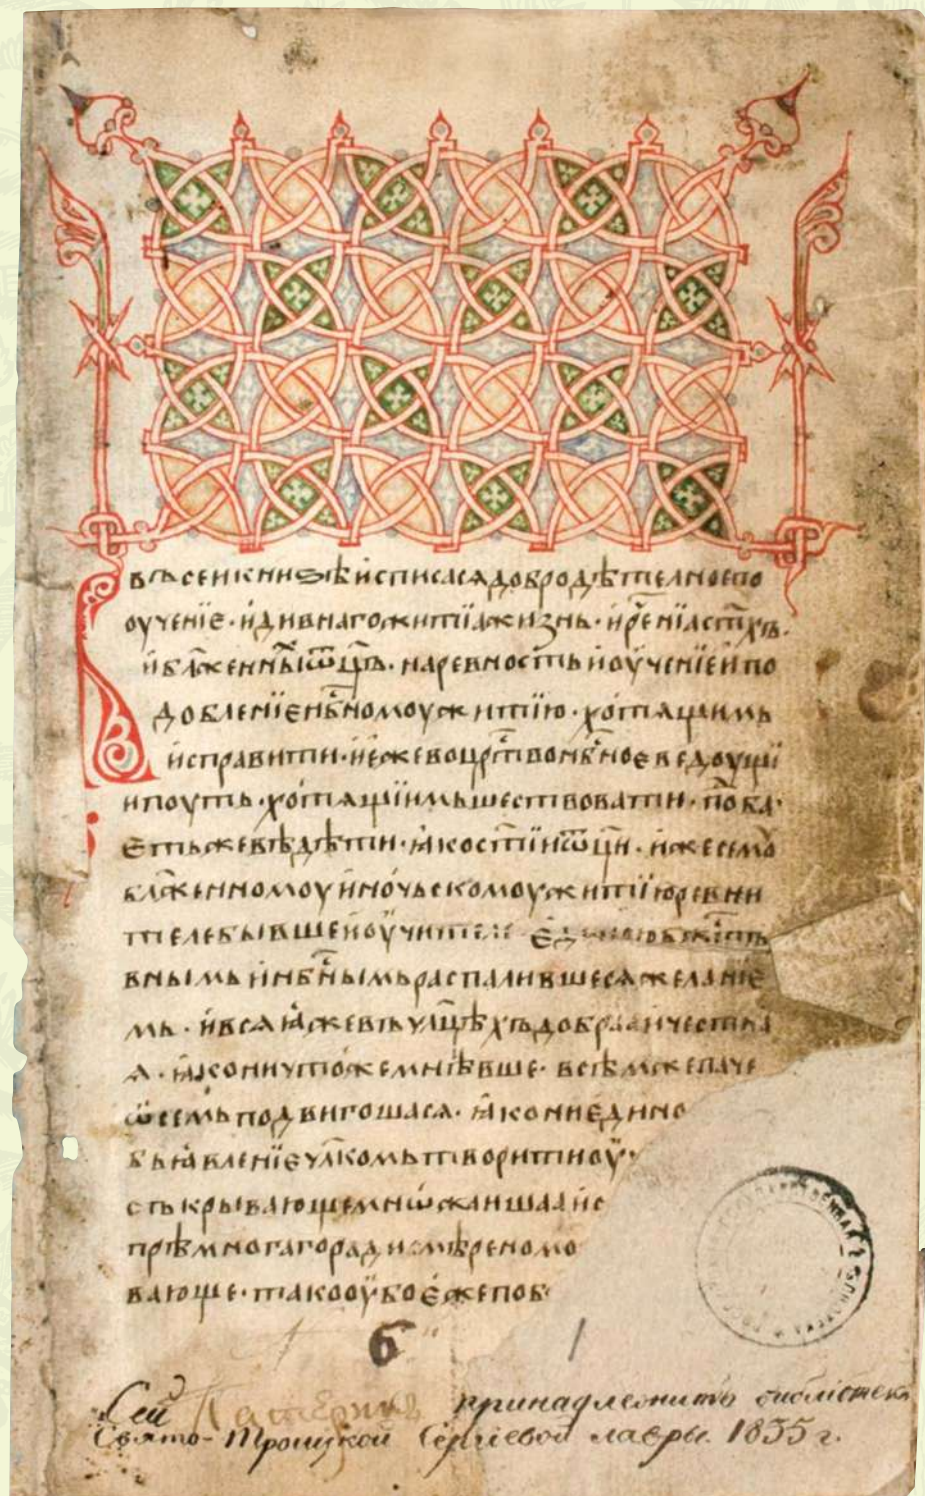 въсеикнизѣиспⷭисасѧдобродѣтелноепо
оученїе · ꙇ҆дивнагожитїажизнь · ꙇ҆рⷱ҇енїастⷯыъ ·
ꙇ҆блⷤеннⷯы ѿц҃ь · наревностьꙇ҆оученїеꙇ҆по
доблениенбⷭ҇номоужитїю · хотѧщимъ
ꙇ҆справити · ꙇ҆ежевоцрⷭ҇твонбⷭ҇ноеведоущї
ипоуть · хотѧщїимьшествовати · пⷣоба ·
етьжевѣдѣти · ꙗкостїиѿц҃и · ижесемоⷹ
блⷤенномоуꙇ҆ночьскомоужитїюревни
телебывшеиоучители
внымьꙇ҆нбⷭ҇нымьраспалившесѧжеланїе
мь · ꙇ҆всѧꙗжевъчл҃цѣхъдобраа
а · ꙗконичтожемнѣвше · всѣмжепаче
ѡсемьподвигошасѧ · ꙗкониедино
бъꙗвленїечл҃комьтворитиоу
съкрывающемнѡжаишаа
прѣмногагоради смѣреномо
вающе · такооубоежепоб
б҃
Сей Патерикъ принадлежитъ библіотек
Свято-Троицкой Сергіевой лавры. 1855 г.